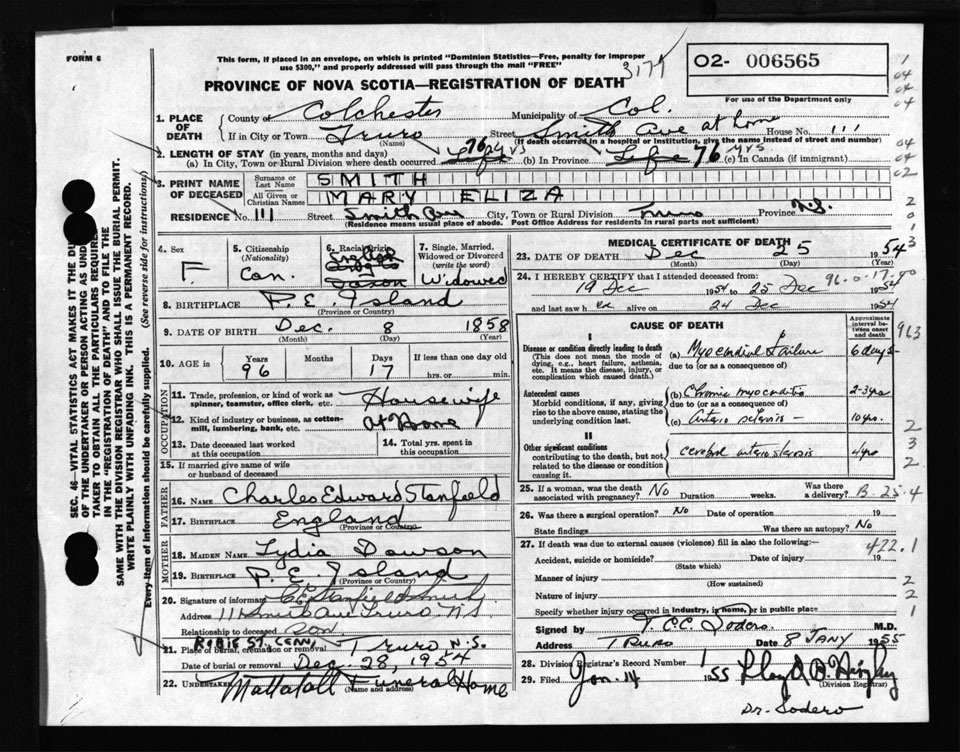 FORM 6
This form, if placed in an envelope, on which is printed "Dominion Statistics—Free, penalty for improper
use $300," and properly addressed will pass through the mail "FREE"
3179
O2- 006565
For use of the Department only
PROVINCE OF NOVA SCOTIA—REGISTRATION OF DEATH
1. PLACE OF DEATH
County of Colchester Municipality of Col.
If in City or Town Truro Street Smith Ave at home House No. 111
(Name) (If death occurred in a hospital or institution, give its name instead of street and number)
2. LENGTH OF STAY (in years, months and days)
(a) In City, Town or Rural Division where death occurred 76 yrs (b) In Province Life 76 yrs. (c) In Canada (if immigrant)
3. PRINT NAME OF DECEASED
Surname or Last Name SMITH
All Given or Christian Names MARY ELIZA
RESIDENCE No. 111 Street Smith Ave City, Town or Rural Division Truro Province N.S.
(Residence means usual place of abode. Post Office Address for residents in rural parts not sufficient)
4. Sex F.
5. Citizenship (Nationality) Can.
6. Racial Origin English
Saxon
7. Single, Married, Widowed or Divorced (write the word) Widowed
8. BIRTHPLACE P.E. Island
(Province or Country)
9. DATE OF BIRTH Dec. 8 1858
(Month) (Day) (Year)
10. AGE in Years 96 Months Days 17 If less than one day old
hrs. or min.
OCCUPATION
11. Trade, profession, or kind of work as spinner, teamster, office clerk, etc. Housewife
12. Kind of industry or business, as cotton-mill, lumbering, bank, etc. At Home
13. Date deceased last worked at this occupation
14. Total yrs. spent in this occupation
15. If married give name of wife or husband of deceased
FATHER
16. NAME Charles Edward Stanfield
17. BIRTHPLACE England
(Province or Country)
MOTHER
18. MAIDEN NAME Lydia Dawson
19. BIRTHPLACE P.E. Island
(Province or Country)
20. Signature of informant C E Stanfield Smith
Address 111 Smith Ave Truro N.S.
Relationship to deceased Son
21. Place of burial, cremation or removal Robie St. Cem. Truro N.S.
Date of burial or removal Dec. 28, 1954
22. UNDERTAKER Mattatall Funeral Home
(Name and address)
MEDICAL CERTIFICATE OF DEATH
23. DATE OF DEATH Dec 25 1954
(Month) (Day) (Year)
24. I HEREBY CERTIFY that I attended deceased from:
19 Dec 1954 to 25 Dec 1954
and last saw h er alive on 24 Dec 1954
96-0-17-40
CAUSE OF DEATH
Approximate interval between onset and death
I
Disease or condition directly leading to death
(This does not mean the mode of dying, e.g., heart failure, asthenia, etc. It means the disease, injury, or complication which caused death.)
(a) Myocardial Failure 6 days
due to (or as a consequence of)
Antecedent causes
Morbid conditions, if any, giving rise to the above cause, stating the underlying condition last.
(b) Chronic myocarditis 2-3 yrs.
due to (or as a consequence of)
(c) Arterio sclerosis 10 yrs.
II
Other significant conditions
contributing to the death, but not related to the disease or condition causing it.
cerebral arteriosclerosis 4 yrs
25. If a woman, was the death associated with pregnancy? No Duration weeks. Was there a delivery?
B-25-4
26. Was there a surgical operation? No Date of operation 19
State findings Was there an autopsy? No
27. If death was due to external causes (violence) fill in also the following:—
422.1
Accident, suicide or homicide? Date of injury 19
(State which)
Manner of injury
(How sustained)
Nature of injury
Specify whether injury occurred in industry, in home, or in public place
Signed by T. C.C. Sodero M.D.
Address TRURO Date 8 JANY 1955
28. Division Registrar's Record Number 1
29. Filed Jan. 14 1955
(Division Registrar)
Dr. Sodero
963
SEC. 46—VITAL STATISTICS ACT MAKES IT THE DU
OF THE UNDERTAKER OR PERSON ACTING AS UND
TAKER TO OBTAIN ALL THE PARTICULARS REQUIRE
IN THE "REGISTRATION OF DEATH" AND TO FILE THE
SAME WITH THE DIVISION REGISTRAR WHO SHALL ISSUE THE BURIAL PERMIT.
WRITE PLAINLY WITH UNFADING INK. THIS IS A PERMANENT RECORD.
Every item of information should be carefully supplied. (See reverse side for instructions.)